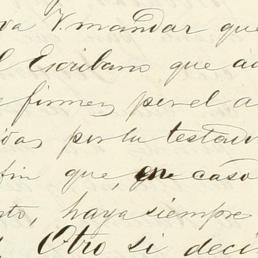 va V. mandar que
l Escribano que a
firmes, por el a
das por la testad
fin que, en caso
to, haya siempre
Otro si deci